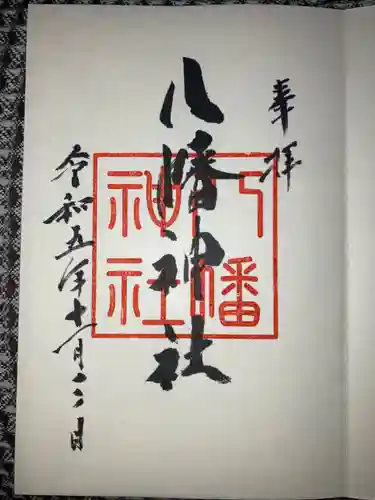 奉拝
八幡神社
八幡
神社
令和五年十一月二二日